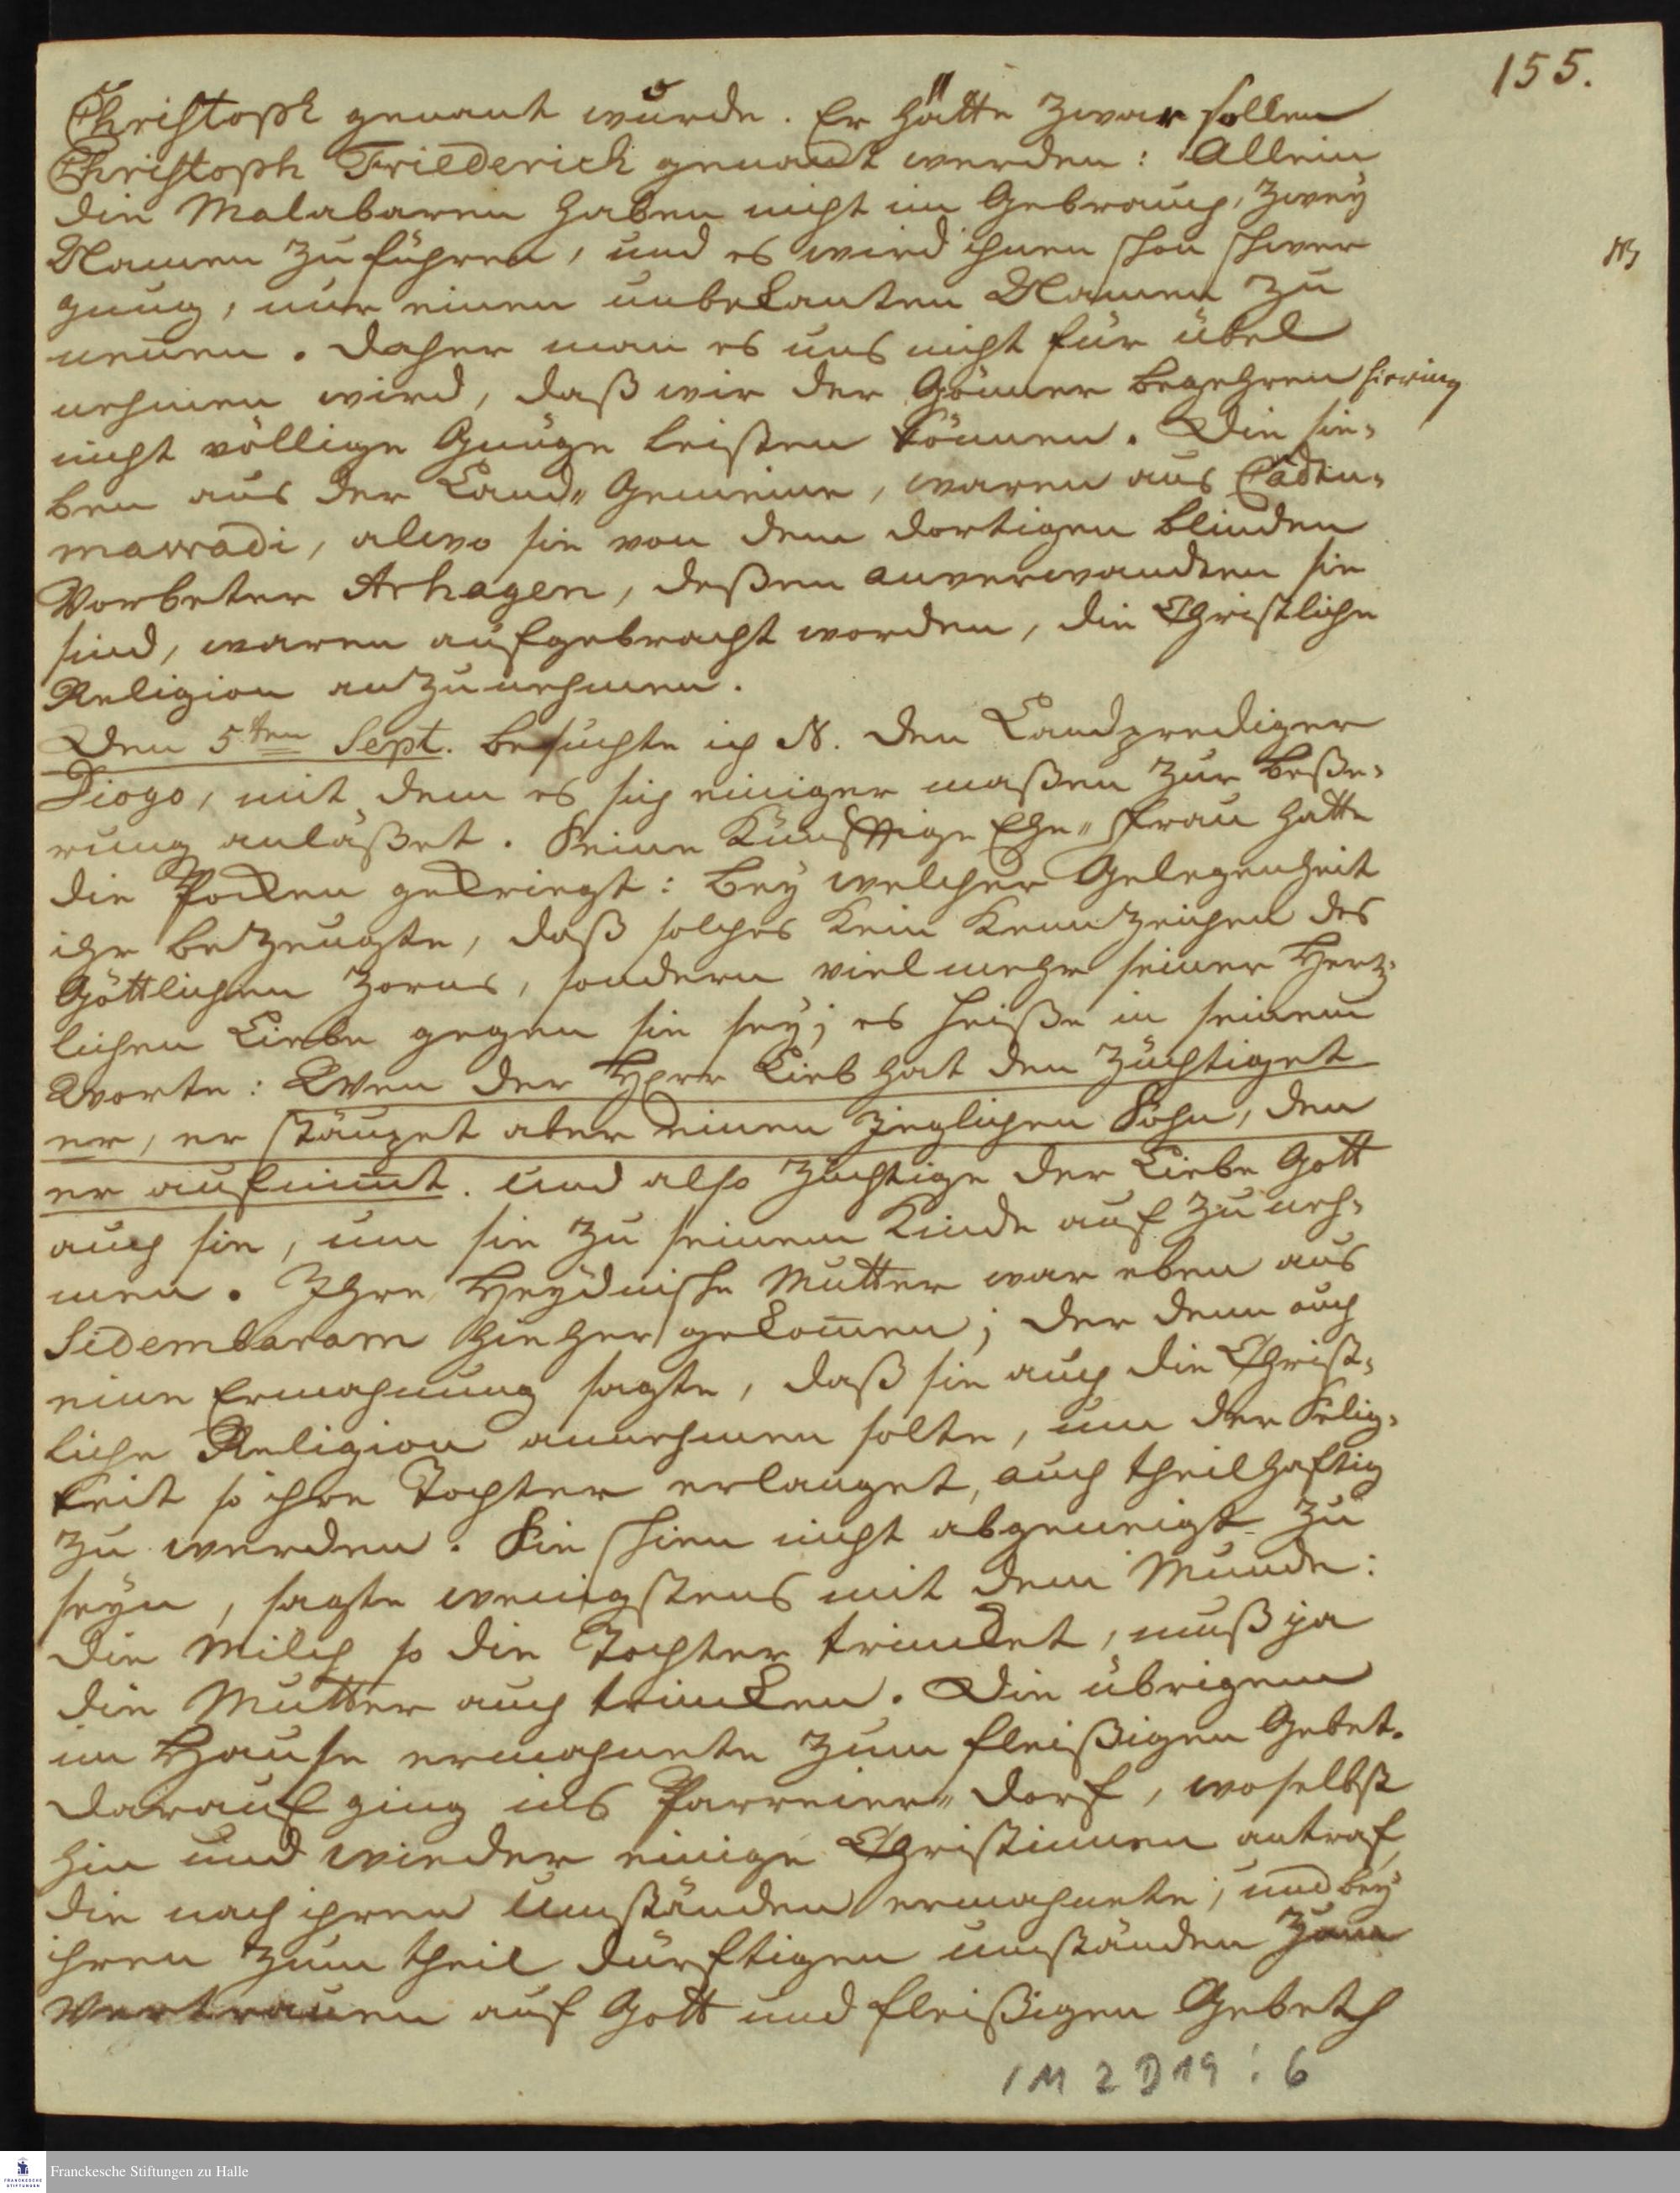 155.
Christoph genant würde. Er hätte zwar sollen
Christoph Friederich genant werden: Allein
die Malabaren haben nicht im Gebrauch, zwey
Namen zu führen, und es wird ihnen schon schwer
gnug, nur einen unbekanten Namen zu
nennen. Daher man es uns nicht für übel
nehmen wird, daß wir der Gönner Begehren hierin
nicht völlige Gnüge leisten können. Die sie-
ben aus der Land-Gemeine, waren aus Cadtu-
mawadi, alwo sie von dem dortigen blinden
Vorbeter Arhagen, deßen anverwandten sie
sind, waren aufgebracht worden, die Christliche
Religion anzunehmen.
Den 5ten Sept. besuchte ich N. den Landprediger
Diogo, mit dem es sich einiger maßen zur beße-
rung anläßet. Seine Künfftige Ehe-Frau hatte
die Pocken gekriegt: bey welcher Gelegenheit
ihr bezeugte, daß solches kein Kennzeichen des
Göttlichen Zorns, sondern vielmehr seiner Hertz-
lichen Liebe gegen sie sey; es heiße in seinem
Worte: Wen der Herr Lieb hat den züchtiget
er, er stäupet aber einen jeglichen Sohn, den
er aufnimt. Und also züchtige der Liebe Gott
auch sie, um sie zu seinem Kinde auf zu neh-
men. Ihre Heydnische Mutter war eben aus
Sidembaram hieher gekomen; der denn auch
eine Ermahnung sagte, daß sie auch die Christ-
liche Religion annehmen solte, um der Selig-
keit so ihre Tochter erlanget, auch theilhaftig
zu werden. Sie schien nicht abgeneigt zu
seyn, sagte wenigstens mit dem Munde:
die Milch so die Tochter trincket, muß ja
die Mutter auch trincken. Die übrigen
im Hause ermahnete zum fleißigen Gebet.
Darauf ging ins Parreier-dorf, woselbst
hin und wieder einige Christinnen antraf,
die nach ihren Umständen ermahnete, und bey
ihren zum theil dürftigen umständen zum
Vertrauen auf Gott und fleißigen Gebeth
1 M 2 D 19 : 6
Franckesche Stiftungen zu Halle